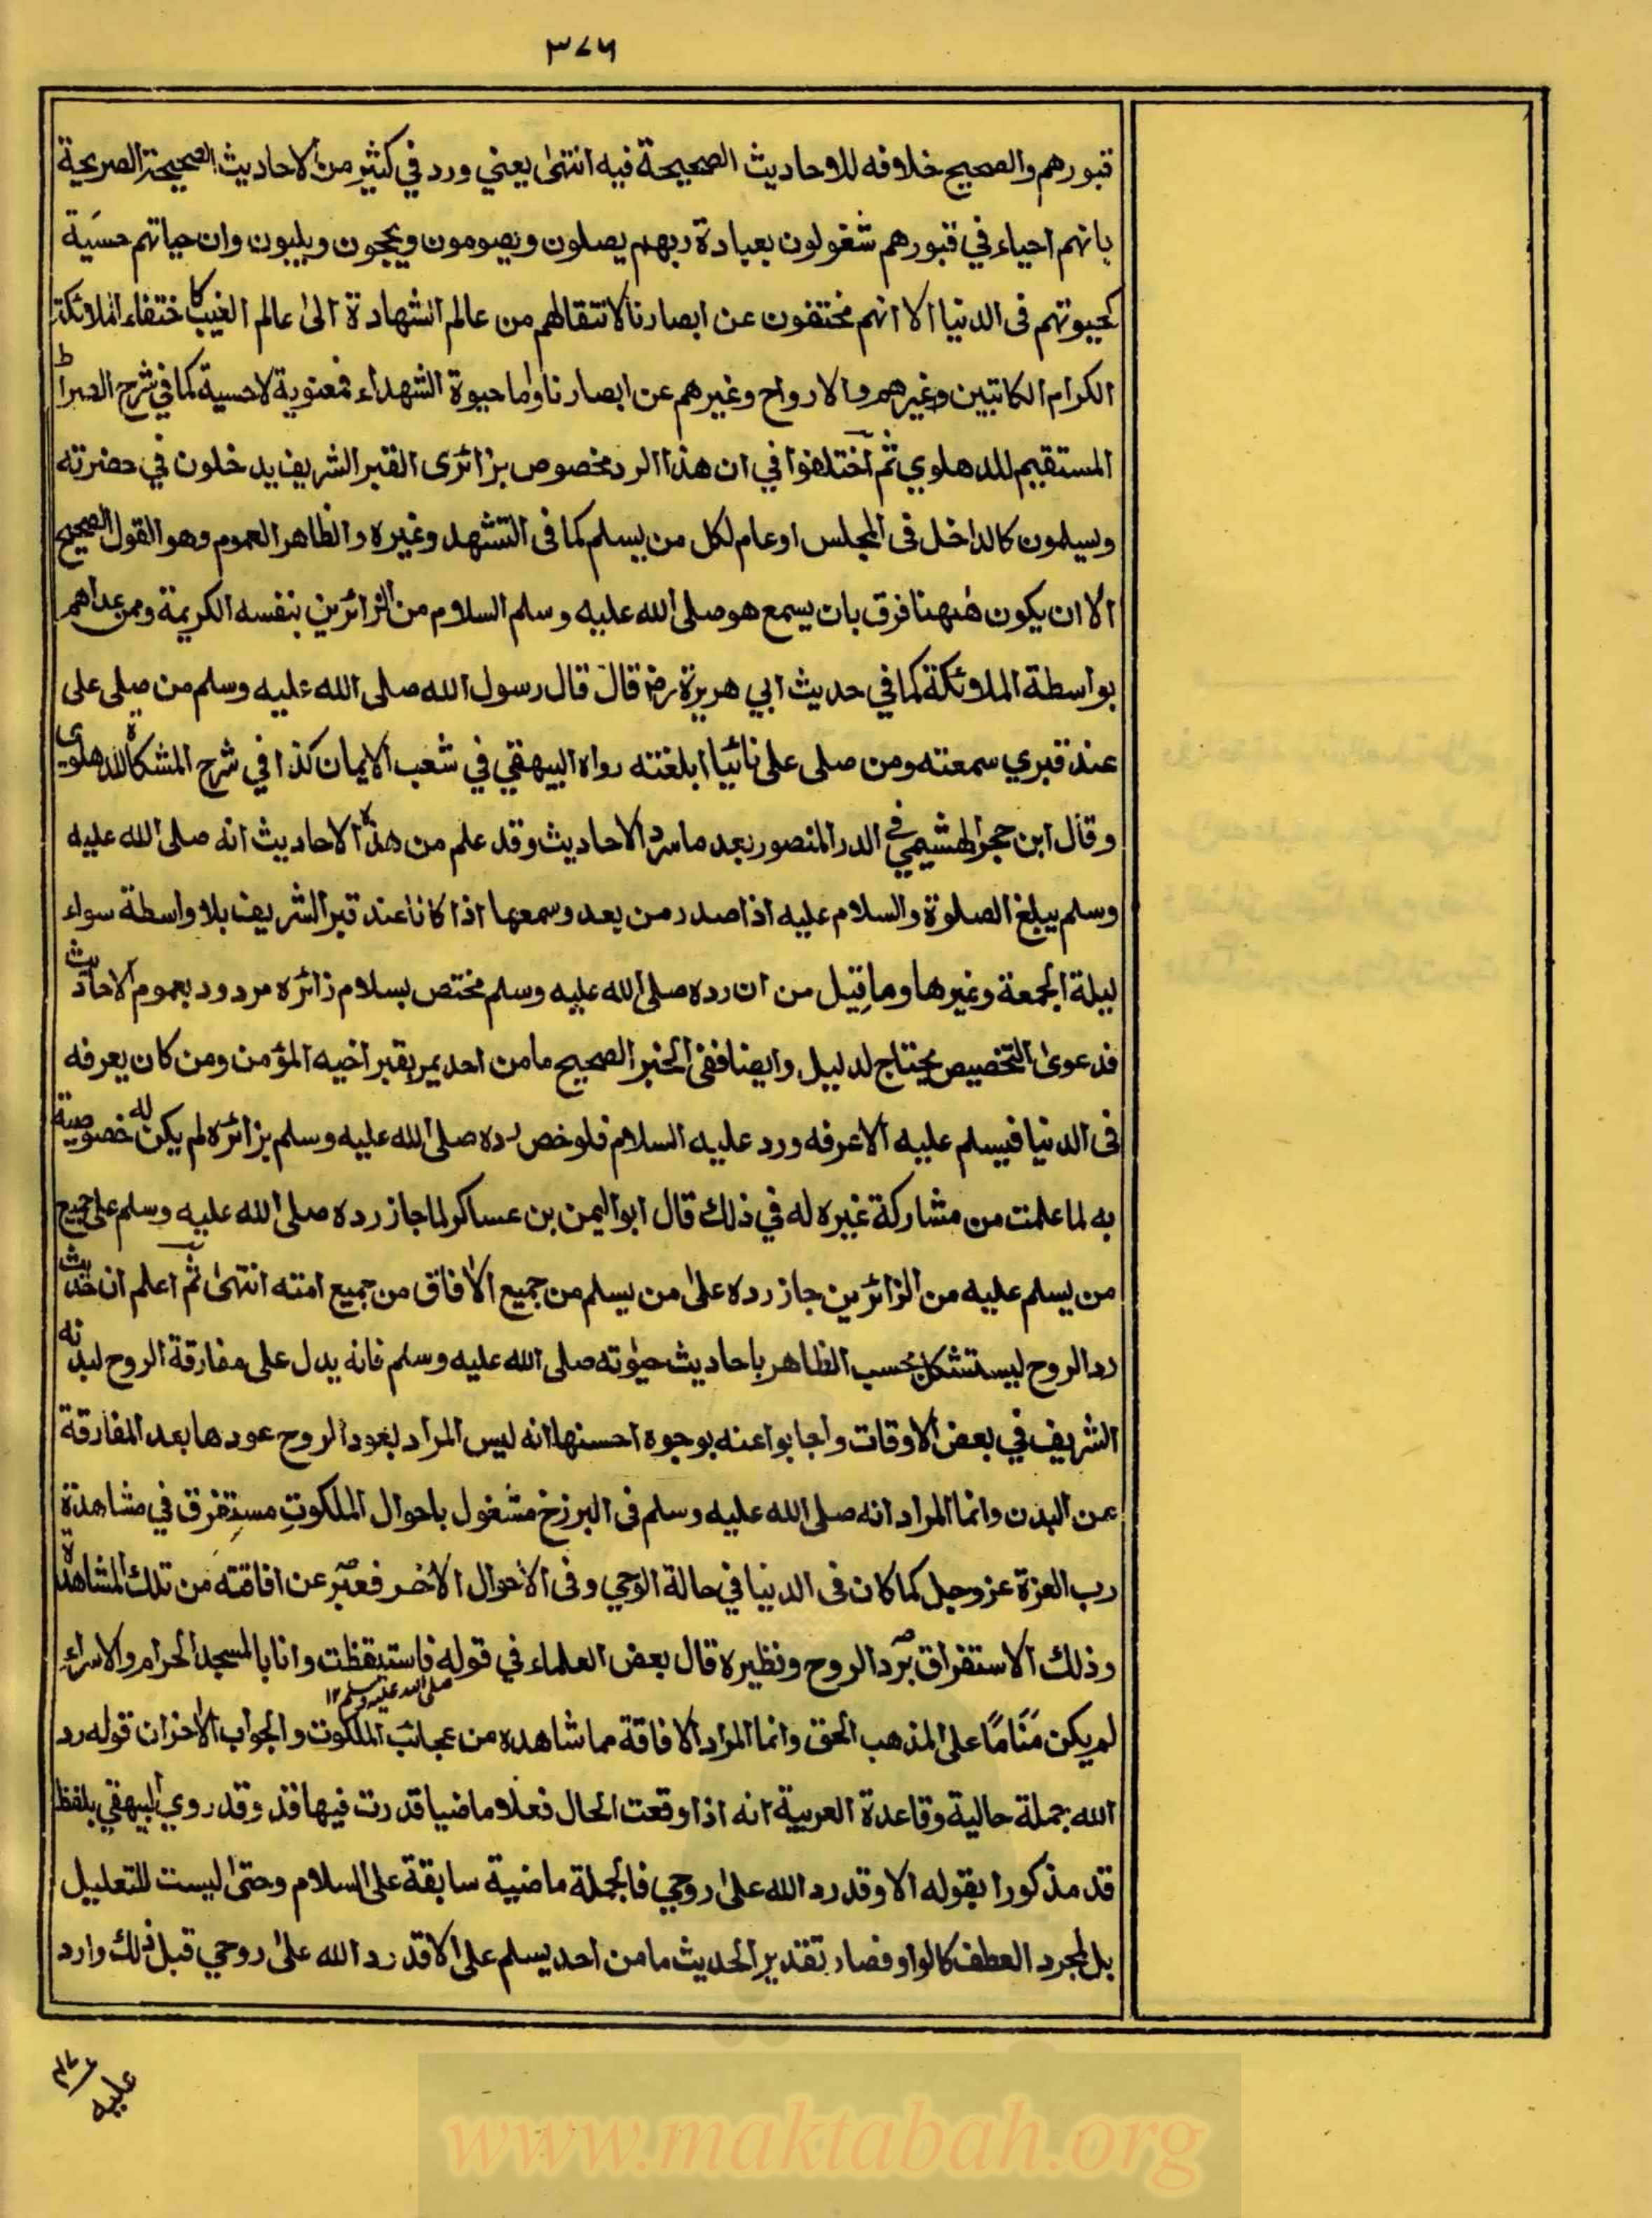 ٣٧٦
قبورهم والصحيح خلافه للاحاديث الصحيحة فيه انتهى يعني ورد في كثير من الاحاديث الصحيحة الصريحة
بانهم احياء في قبورهم شغولون بعبادة ربهم يصلون ويصومون ويحجون ويلبون وان حياتهم حسية
كحيوتهم فى الدنيا الا انهم مختفون عن ابصارنا لانتقالهم من عالم الشهادة الى عالم الغيب كاختفاء الملائكة
الكرام الكاتبين وغيرهم والارواح وغيرهم عن ابصارنا واما حيوة الشهداء فمعنوية لاحسية كما في شرح الصراط
المستقيم للدهلوي ثم اختلفوا في ان هذا الرد مخصوص بزائرى القبر الشريف يدخلون في حضرته
ويسلمون كالداخل فى المجلس او عام لكل من يسلم كما فى التشهد وغيره والظاهر العموم وهو القول الصحيح
الا ان يكون ههنا فرق بان يسمع هو صلى الله عليه وسلم السلام من الزائرين بنفسه الكريمة وممن عداهم
بواسطة الملائكة كما في حديث ابي هريرة رض قال قال رسول الله صلى الله عليه وسلم من صلى على
عند قبري سمعته ومن صلى على نائيا ابلغته رواه البيهقي في شعب الايمان كذا في شرح المشكاة للدهلوي
وقال ابن حجر الهشيمي في الدر المنصور بعد ما سرد الاحاديث وقد علم من هذه الاحاديث انه صلى الله عليه
وسلم يبلغ الصلوة والسلام عليه اذا صدر من بعد وسمعها اذا كانا عند قبر الشريف بلا واسطة سواء
ليلة الجمعة وغيرها وما قيل من ان رده صلى الله عليه وسلم مختص بسلام زائره مردود بعموم الاحاديث
فدعوى التخصيص يحتاج لدليل وايضا ففى الخبر الصحيح ما من احد يمر بقبر اخيه المؤمن ومن كان يعرفه
فى الدنيا فيسلم عليه الا عرفه ورد عليه السلام فلو خص رده صلى الله عليه وسلم بزائره لم يكن له خصوصية
به لما علمت من مشاركة غيره له في ذلك قال ابو اليمن بن عساكر لما جاز رده صلى الله عليه وسلم على جميع
من يسلم عليه من الزائرين جاز رده على من يسلم من جميع الآفاق من جميع امته انتهى ثم اعلم ان حديث
رد الروح ليستشكل بحسب الظاهر باحاديث حيوته صلى الله عليه وسلم فانه يدل على مفارقة الروح لبدنه
الشريف في بعض الاوقات واجابوا عنه بوجوه احسنها انه ليس المراد بعود الروح عودها بعد المفارقة
عن البدن وانما المراد انه صلى الله عليه وسلم فى البرزخ مشغول باحوال الملكوت مستغرق في مشاهدة
رب العزة عز وجل كما كان فى الدنيا في حالة الوحي وفى الاحوال الاخر فعبر عن افاقته من تلك المشاهدة
وذلك الاستغراق برد الروح ونظيره قال بعض العلماء في قوله فاستيقظت وانا بالمسجد الحرام والاسراء
صلى الله عليه وسلم ١٢
لم يكن مناما على المذهب الحق وانما المراد الافاقة مما شاهده من عجائب الملكوت والجواب الاخر ان قوله رد
الله جملة حالية وقاعدة العربية انه اذا وقعت الحال فعلا ماضيا قدرت فيها قد وقد روي البيهقي بلفظ
قد مذكورا بقوله الا وقد رد الله على روحي فالجملة ماضية سابقة على السلام وحتى ليست للتعليل
بل لمجرد العطف كالواو فصار تقدير الحديث ما من احد يسلم على الا قد رد الله على روحي قبل ذلك وارد
عليه
www.maktabah.org